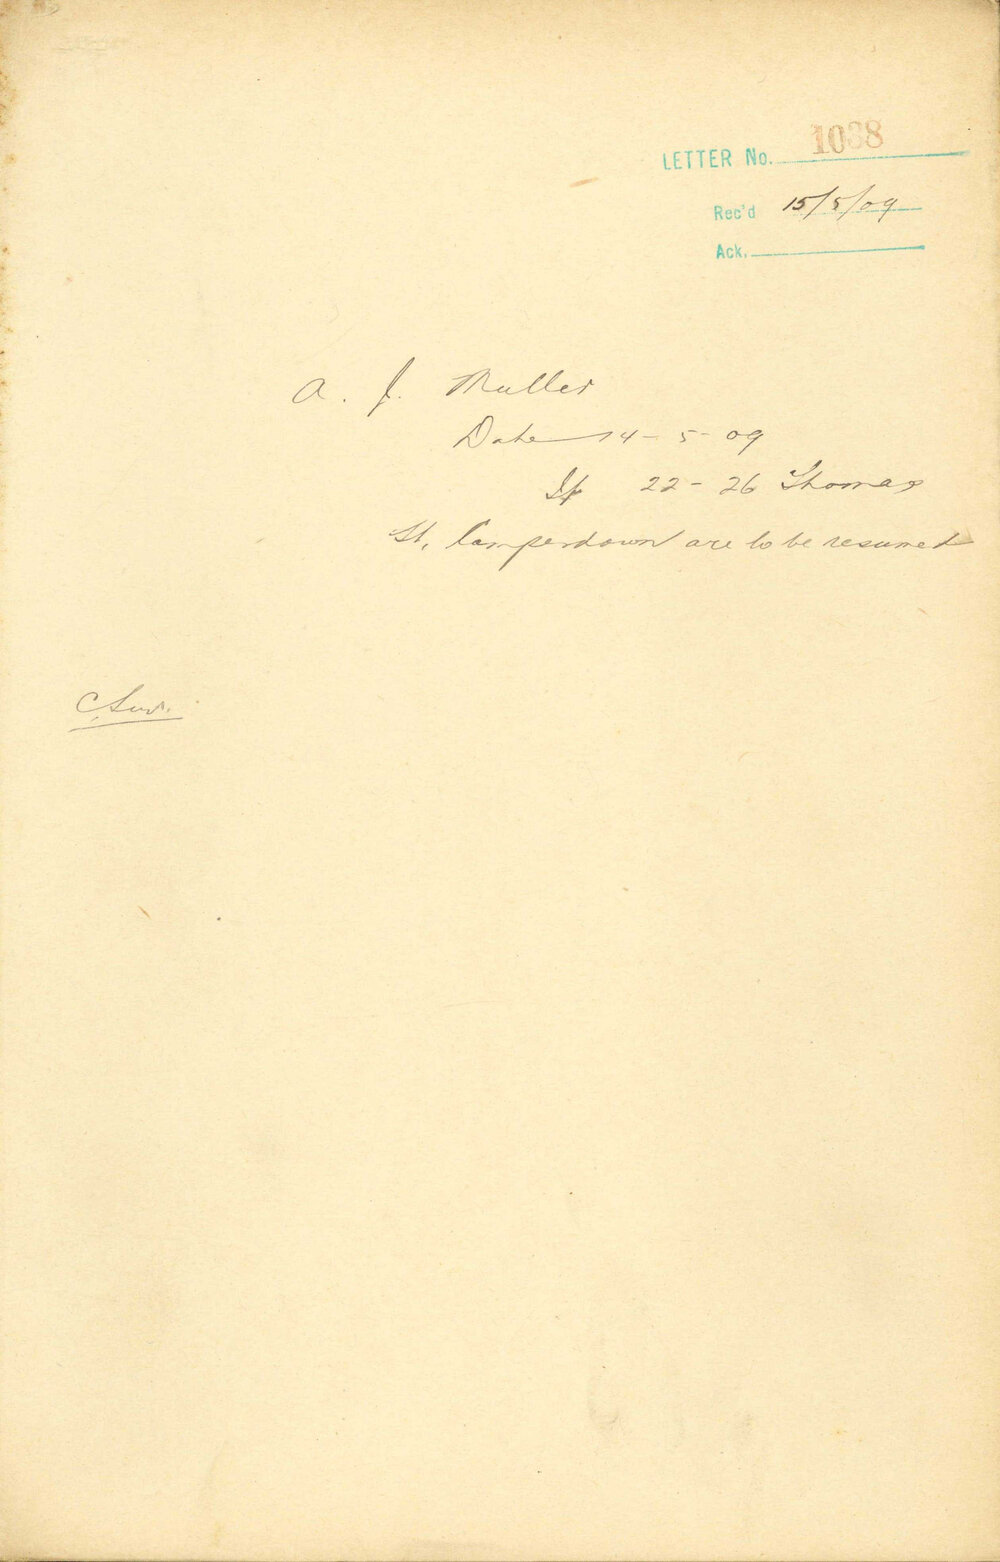 LETTER No. 1038
Rec'd 15/5/09
Ack.
A. J. Muller
Date 14-5-09
If 22-26 Thomas
St, Camperdown are to be resumed